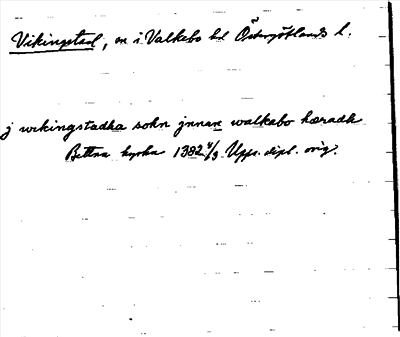 Vikingstad, sn i Valkebo hd Östergötlands l.
j wikingstadha sokn jnnan walkabo hæradh
Bettna kyrka 1382 4/3 Upps. dipl. orig.